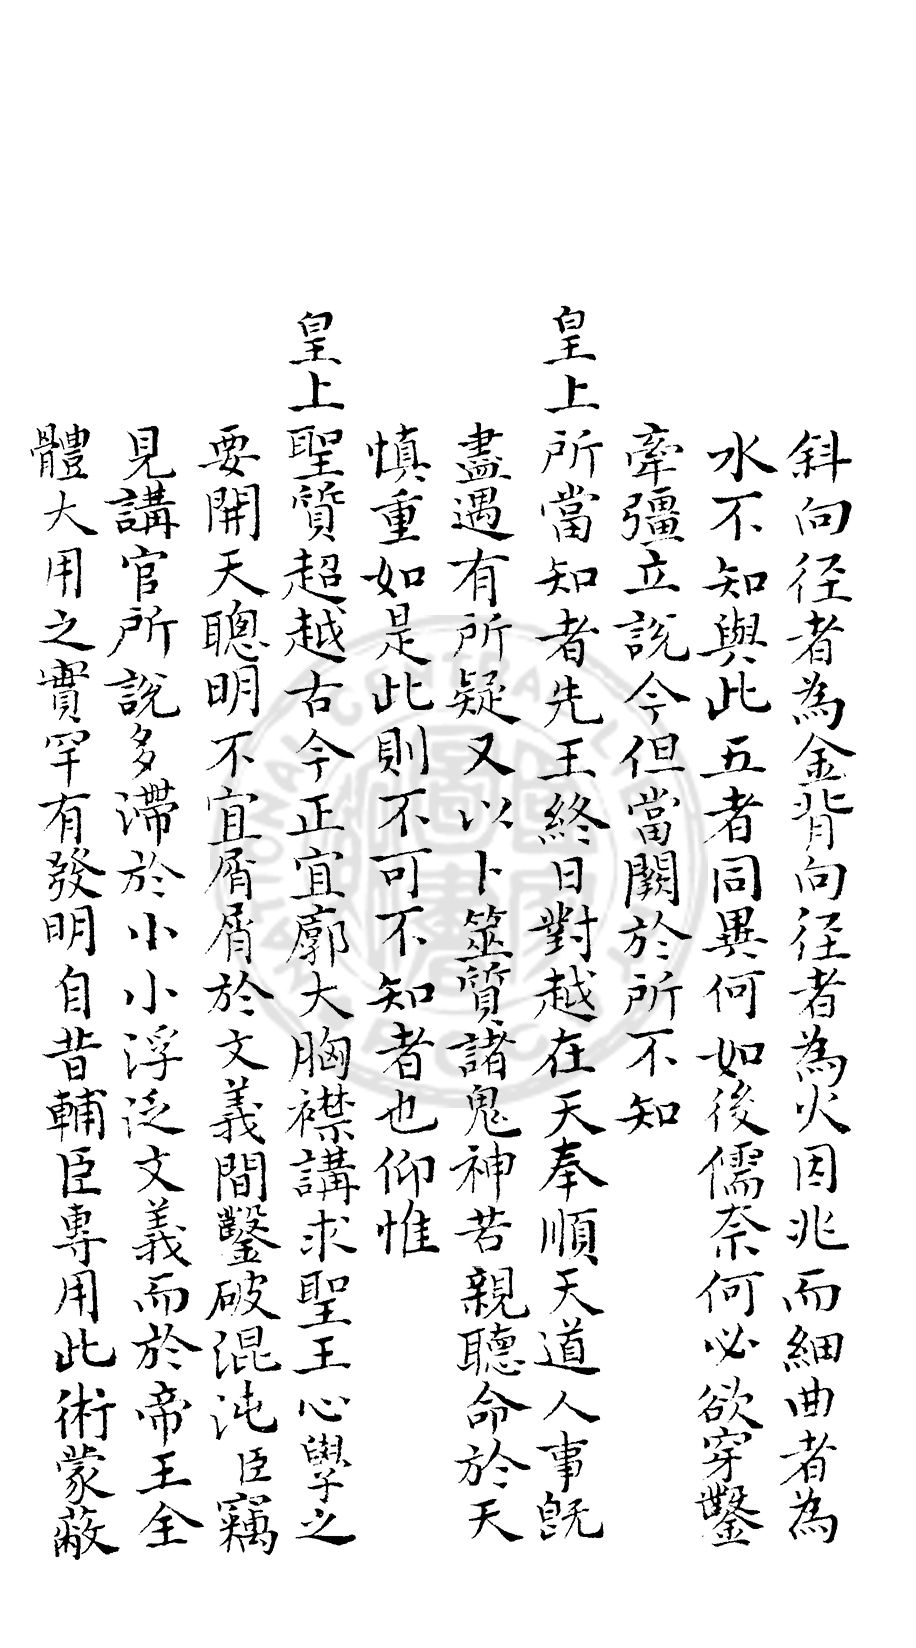 斜向径者為金背向径者為火因兆而細曲者為
水不知與此五者同異何如後儒奈何必欲穿鑿
牽彊立說今但當闕於所不知
皇上所當知者先王終日對越在天奉順天道人事旣
盡遇有所疑又以卜筮質諸鬼神若親聽命於天
慎重如是此則不可不知者也仰惟
皇上聖質超越古今正宜廓大胸襟講求聖王心學之
要開天聰明不宜屑屑於文義間鑿破混沌臣竊
見講官所說多滯於小小浮泛文義而於帝王全
體大用之實罕有發明自昔輔臣專用此術蒙蔽